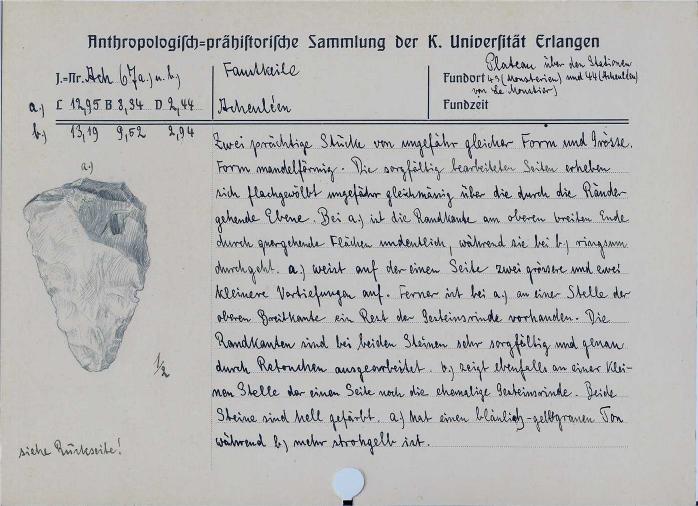 Anthropologisch=prähistorische Sammlung der K. Universität Erlangen
J.=Nr. Ach 67a.) u. b.)
Faustkeile
Fundort Plateau über den Stationen
43 (Monsterien) und 44 (Acheuléen)
von Le Moustier)
a.) L 12,95 B 8,34 D 2,44
Acheuléen
Fundzeit
b.) 13,19 9,52 2,94
Zwei prächtige Stücke von ungefähr gleicher Form und Grösse.
Form mandelförmig. Die sorgfältig bearbeiteten Seiten erheben
sich flachgewölbt ungefähr gleichmässig über die durch die Ränder
gehende Ebene. Bei a.) ist die Randkante am oberen breiten Ende
durch quergehende Flächen undeutlich, während sie bei b.) ringsum
durchgeht. a.) weist auf der einen Seite zwei grössere und zwei
kleinere Vertiefungen auf. Ferner ist bei a.) an einer Stelle der
oberen Breitkante ein Rest der Gesteinsrinde vorhanden. Die
Randkanten sind bei beiden Steinen sehr sorgfältig und genau
durch Retouchen ausgearbeitet. b.) zeigt ebenfalls an einer klei-
nen Stelle der einen Seite noch die ehemalige Gesteinsrinde. Beide
Steine sind hell gefärbt. a.) hat einen bläulich-gelbgrauen Ton
während b.) mehr strohgelb ist.
a.)
1/2
siehe Rückseite!